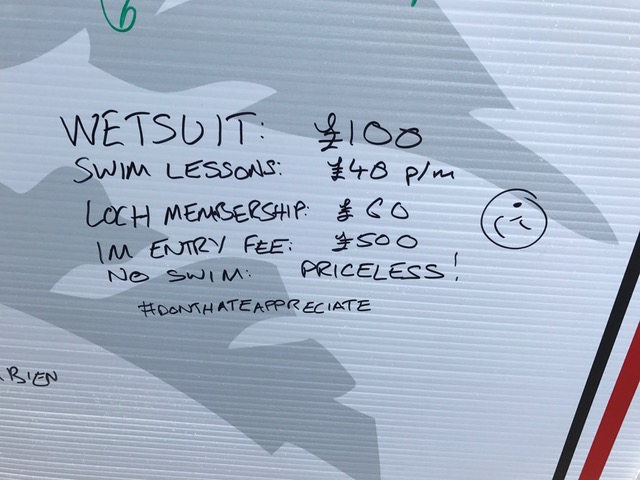 6
WETSUIT: £100
SWIM LESSONS: £40 p/m
LOCH MEMBERSHIP: £60
IM ENTRY FEE: £500
NO SWIM: PRICELESS!
#DONTHATEAPPRECIATE
BIEN